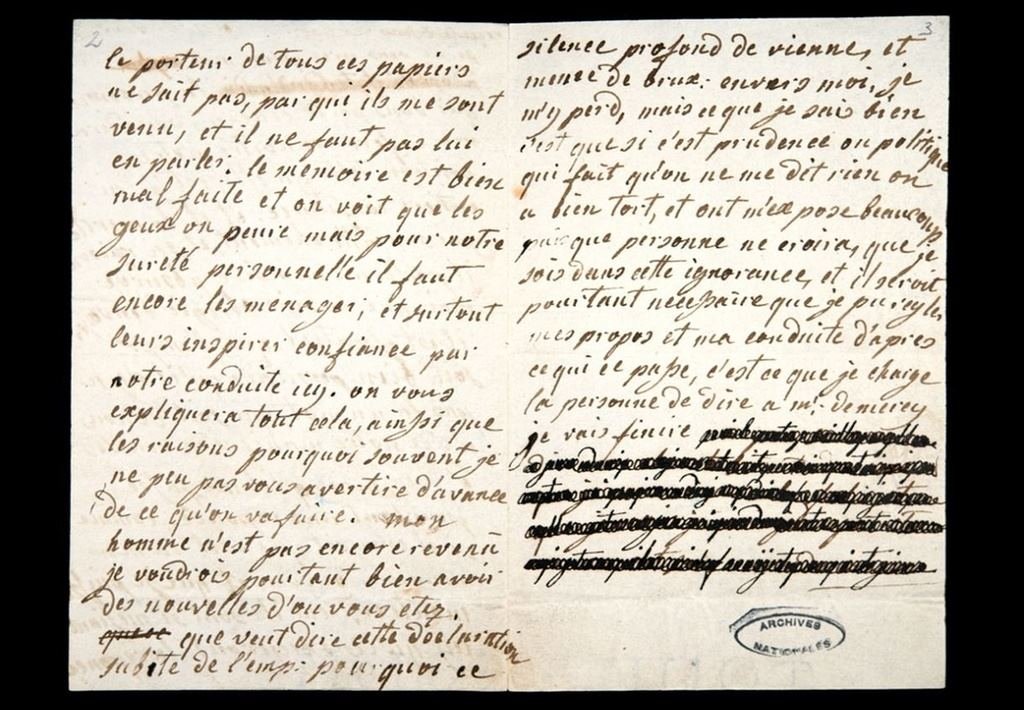 2
le porteur de tous ces papiers
ne sait pas, par qui ils me sont
venu, et il ne faut pas lui
en parler. le memoire est bien
mal faite et on voit que les
geux on peure mais pour notre
sureté personnelle il faut
encore les menager, et surtout
leurs inspirer confiance par
notre conduite icy. on vous
expliquera tout cela, ainssi que
les raisons pourquoi souvent je
ne peu pas vous avertire d'avance
de ce qu'on va faire. mon
homme n'est pas encore revenu
je voudrois pourtant bien avoir
des nouvelles d'ou vous etez.
que veut dire cette declaration
subite de l'emp: pourquoi ce
3
silence profond de vienne, et
meme de brux: envers moi, je
m'y perd, mais ce que je sais bien
c'est que si c'est prudence ou politique
qui fait qu'on ne me dit rien on
a bien tort, et ont m'expose beaucoup
puisque personne ne croira, que je
sois dans cette ignorance, et il seroit
pourtant necessaire que je puregler
mes propos et ma conduite d'apres
ce qui ce passe, c'est ce que je charge
la personne de dire a mr. demercy
je vais finire
ARCHIVES
NATIONALES